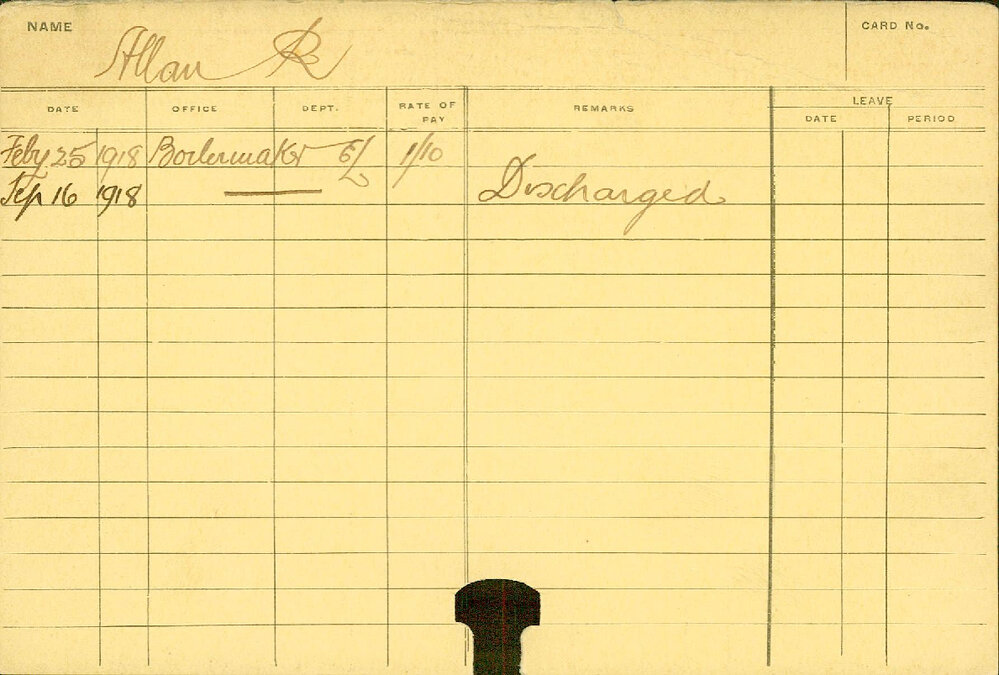 NAME Allan R CARD No.
DATE OFFICE DEPT. RATE OF PAY REMARKS LEAVE
DATE PERIOD
Feby 25 1918 Boilermaker 1/10
Sep 16 1918 — Discharged